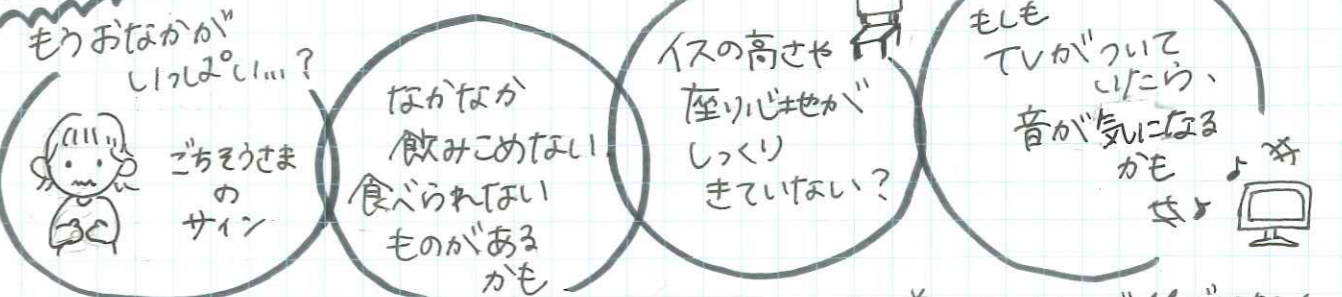 もうおなかが
いっぱい…?
ごちそうさま
の
サイン
なかなか
飲みこめない
食べられない
ものがある
かも
イスの高さや
座り心地が
しっくり
きていない?
もしも
TVがついて
いたら、
音が気になる
かも